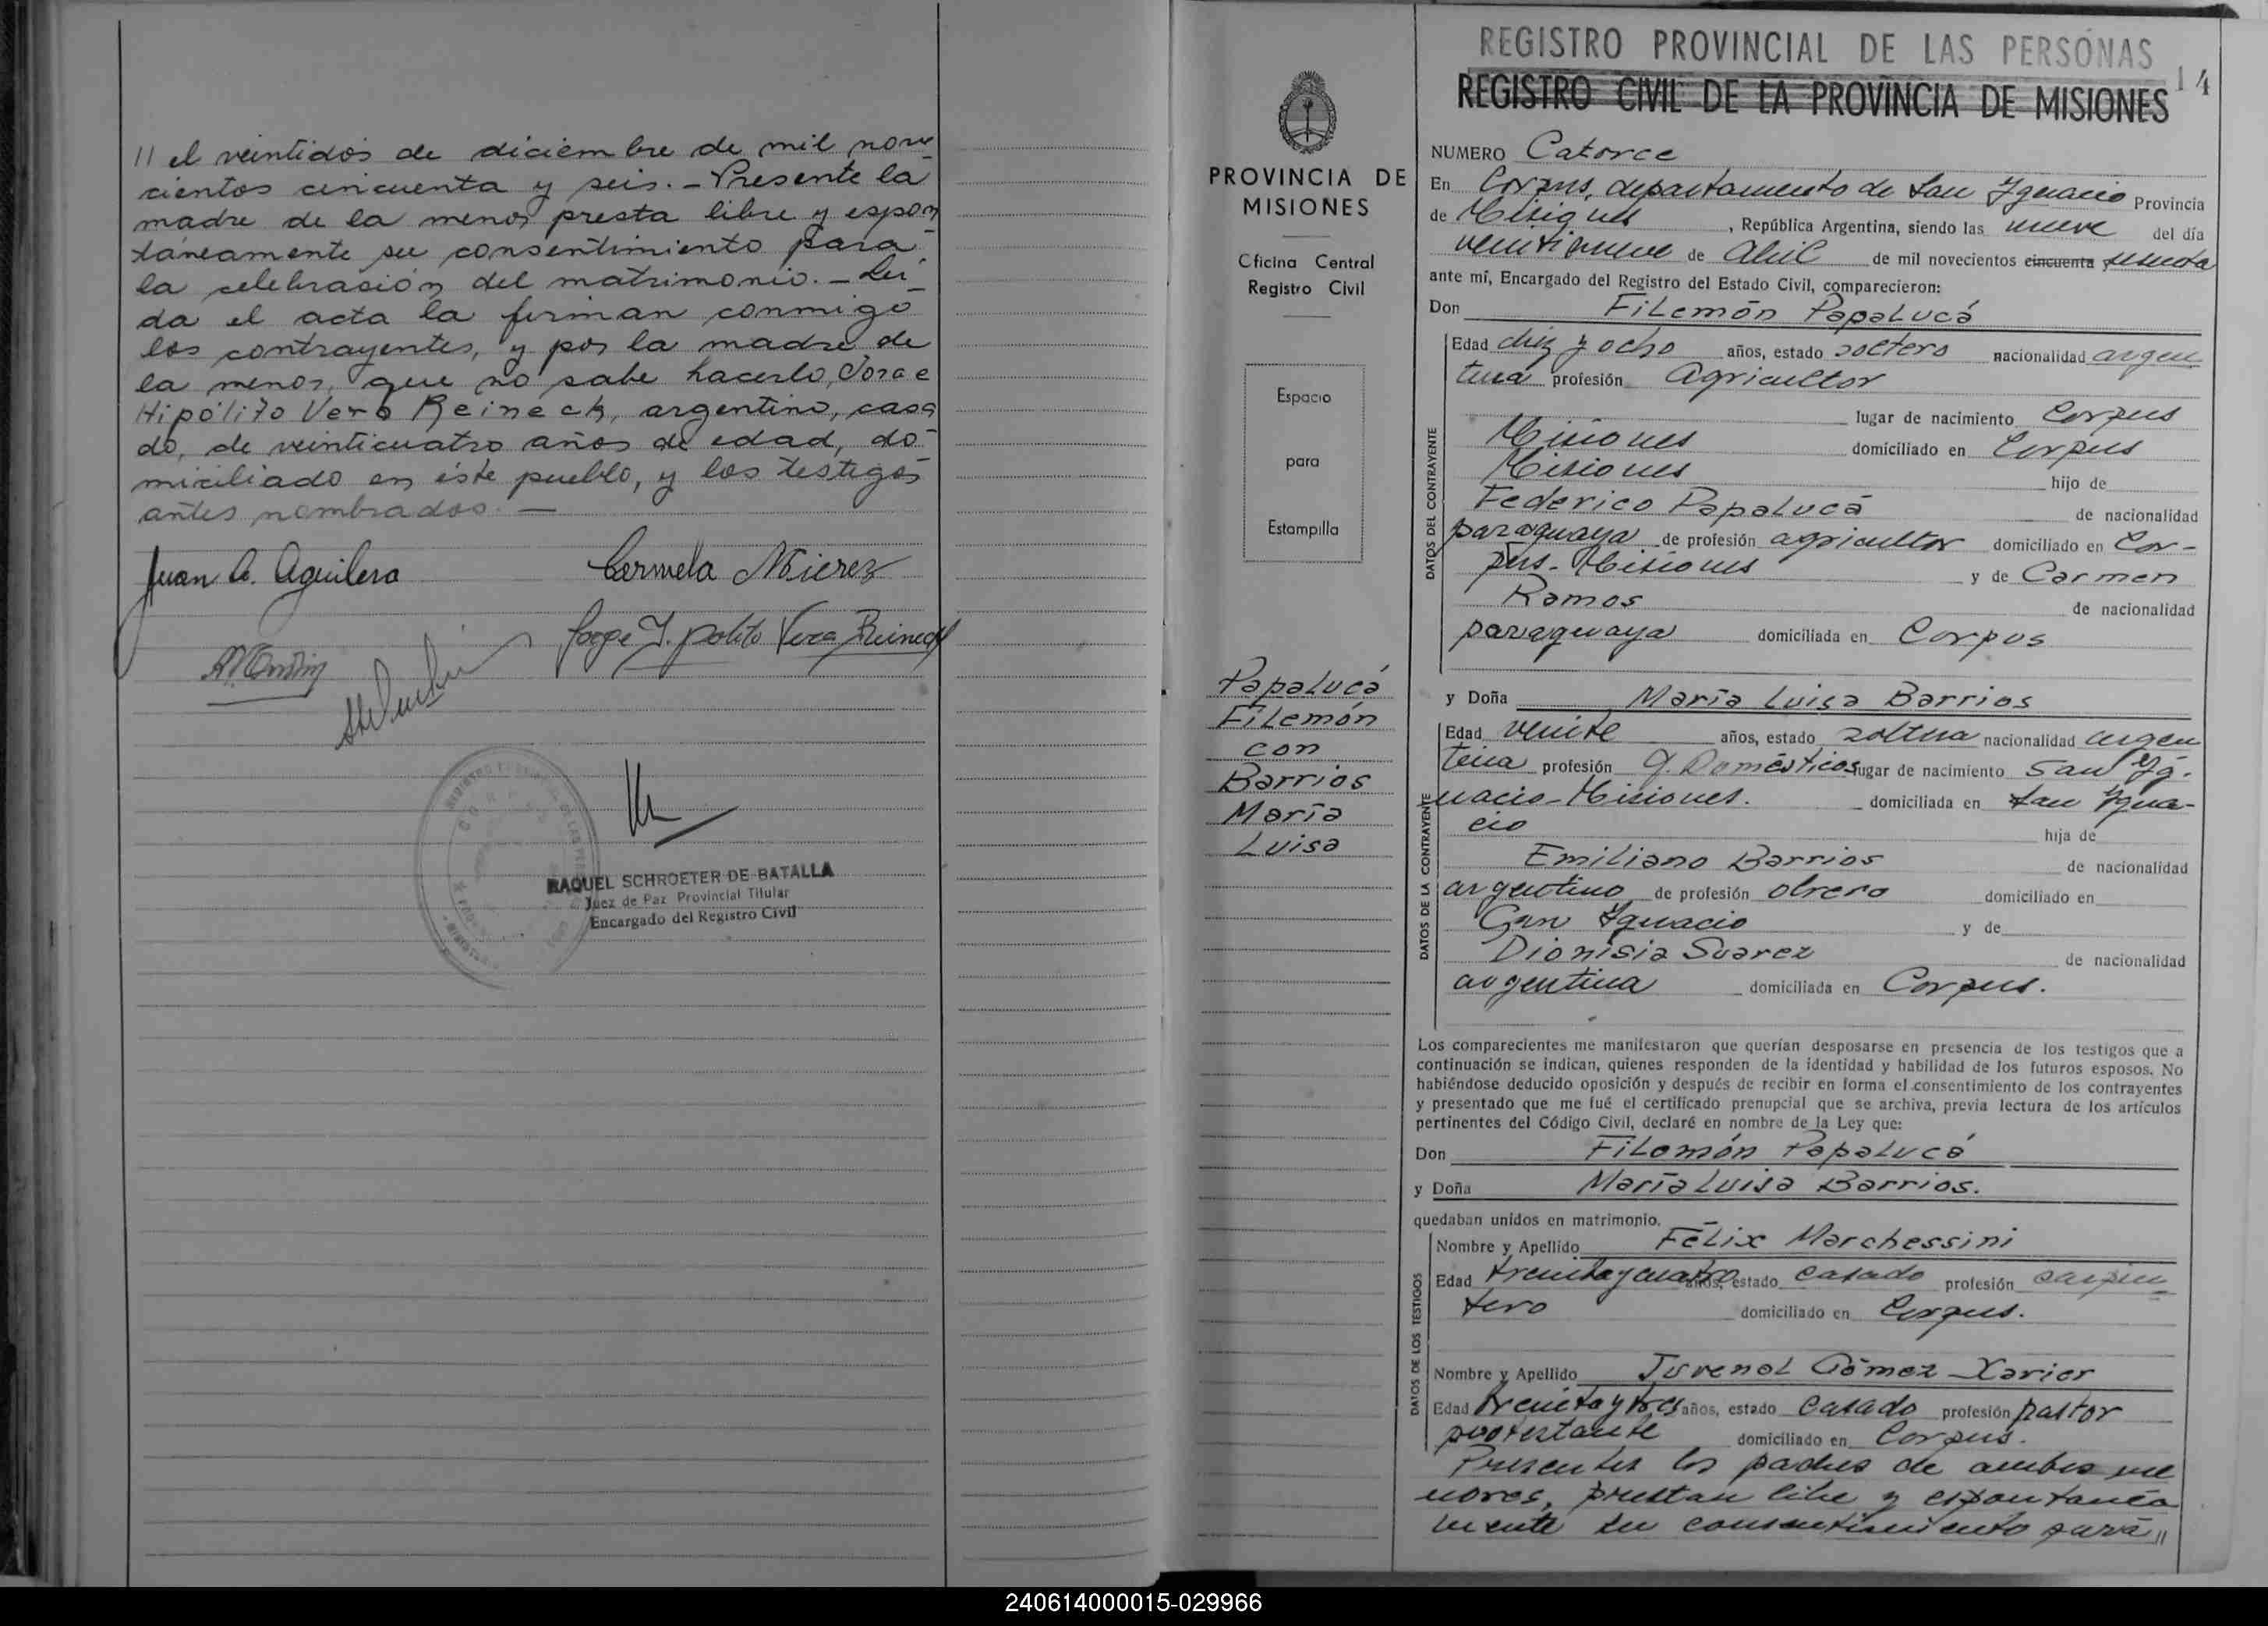 // el veintidós de diciembre de mil nove
cientos cincuenta y seis. - Presente la
madre de la menor presta libre y espon
táneamente su consentimiento para
la celebración del matrimonio. - Leí
da el acta la firman conmigo
los contrayentes, y por la madre de
la menor, que no sabe hacerlo, Jorge
Hipólito Vera Reineck, argentino, casa
do, de veinticuatro años de edad, do
miciliado en éste pueblo, y los testigos
antes nombrados. —
Juan A. Aguilera
Carmela Mierez
Jorge I. polito Vera Reineck
RAQUEL SCHROETER DE BATALLA
Juez de Paz Provincial Titular
Encargado del Registro Civil
PROVINCIA DE
MISIONES
Oficina Central
Registro Civil
Espacio
para
Estampilla
Papalucá
Filemón
con
Barrios
María
Luisa
REGISTRO PROVINCIAL DE LAS PERSONAS
REGISTRO CIVIL DE LA PROVINCIA DE MISIONES
14
NUMERO Catorce
En Corpus, departamento de San Ignacio Provincia
de Misiones, República Argentina, siendo las nueve del día
veintinueve de Abril de mil novecientos cincuenta y sesenta
ante mí, Encargado del Registro del Estado Civil, comparecieron:
Don Filemón Papalucá
DATOS DEL CONTRAYENTE
Edad diez y ocho años, estado soltero nacionalidad argen
tina profesión Agricultor
lugar de nacimiento Corpus
Misiones domiciliado en Corpus
Misiones hijo de
Federico Papalucá de nacionalidad
paraguaya de profesión agricultor domiciliado en Cor-
pus - Misiones y de Carmen
Ramos de nacionalidad
paraguaya domiciliada en Corpus
y Doña María Luisa Barrios
DATOS DE LA CONTRAYENTE
Edad veinte años, estado soltera nacionalidad argen
tina profesión Q. Domésticos lugar de nacimiento San Ig.
nacio - Misiones. domiciliada en San Igna-
cio hija de
Emiliano Barrios de nacionalidad
argentino de profesión obrero domiciliado en
San Ignacio y de
Dionisia Suarez de nacionalidad
argentina domiciliada en Corpus.
Los comparecientes me manifestaron que querían desposarse en presencia de los testigos que a
continuación se indican, quienes responden de la identidad y habilidad de los futuros esposos. No
habiéndose deducido oposición y después de recibir en forma el consentimiento de los contrayentes
y presentado que me fué el certificado prenupcial que se archiva, previa lectura de los artículos
pertinentes del Código Civil, declaré en nombre de la Ley que:
Don Filemón Papalucá
y Doña María Luisa Barrios.
quedaban unidos en matrimonio.
DATOS DE LOS TESTIGOS
Nombre y Apellido Félix Marchessini
Edad treinta y cuatro años, estado casado profesión carpin
tero domiciliado en Corpus.
Nombre y Apellido Juvenal Gómez Xavier
Edad treinta y tres años, estado casado profesión pastor
protestante domiciliado en Corpus.
Presentes los padres de ambos me
nores, prestan libre y espontanea
mente su consentimiento para //
240614000015-029966